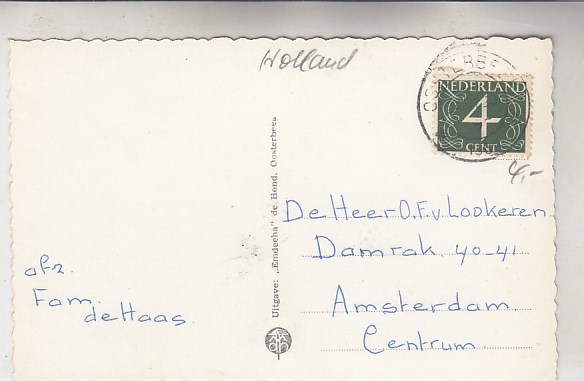 Holland
NEDERLAND
4
CENT
4,-
Uitgave: „Emdeeha" de Hond, Oosterbeek
De Heer O.F.v Lookeren
Damrak 40-41
Amsterdam
Centrum.
afz.
Fam.
deHaas